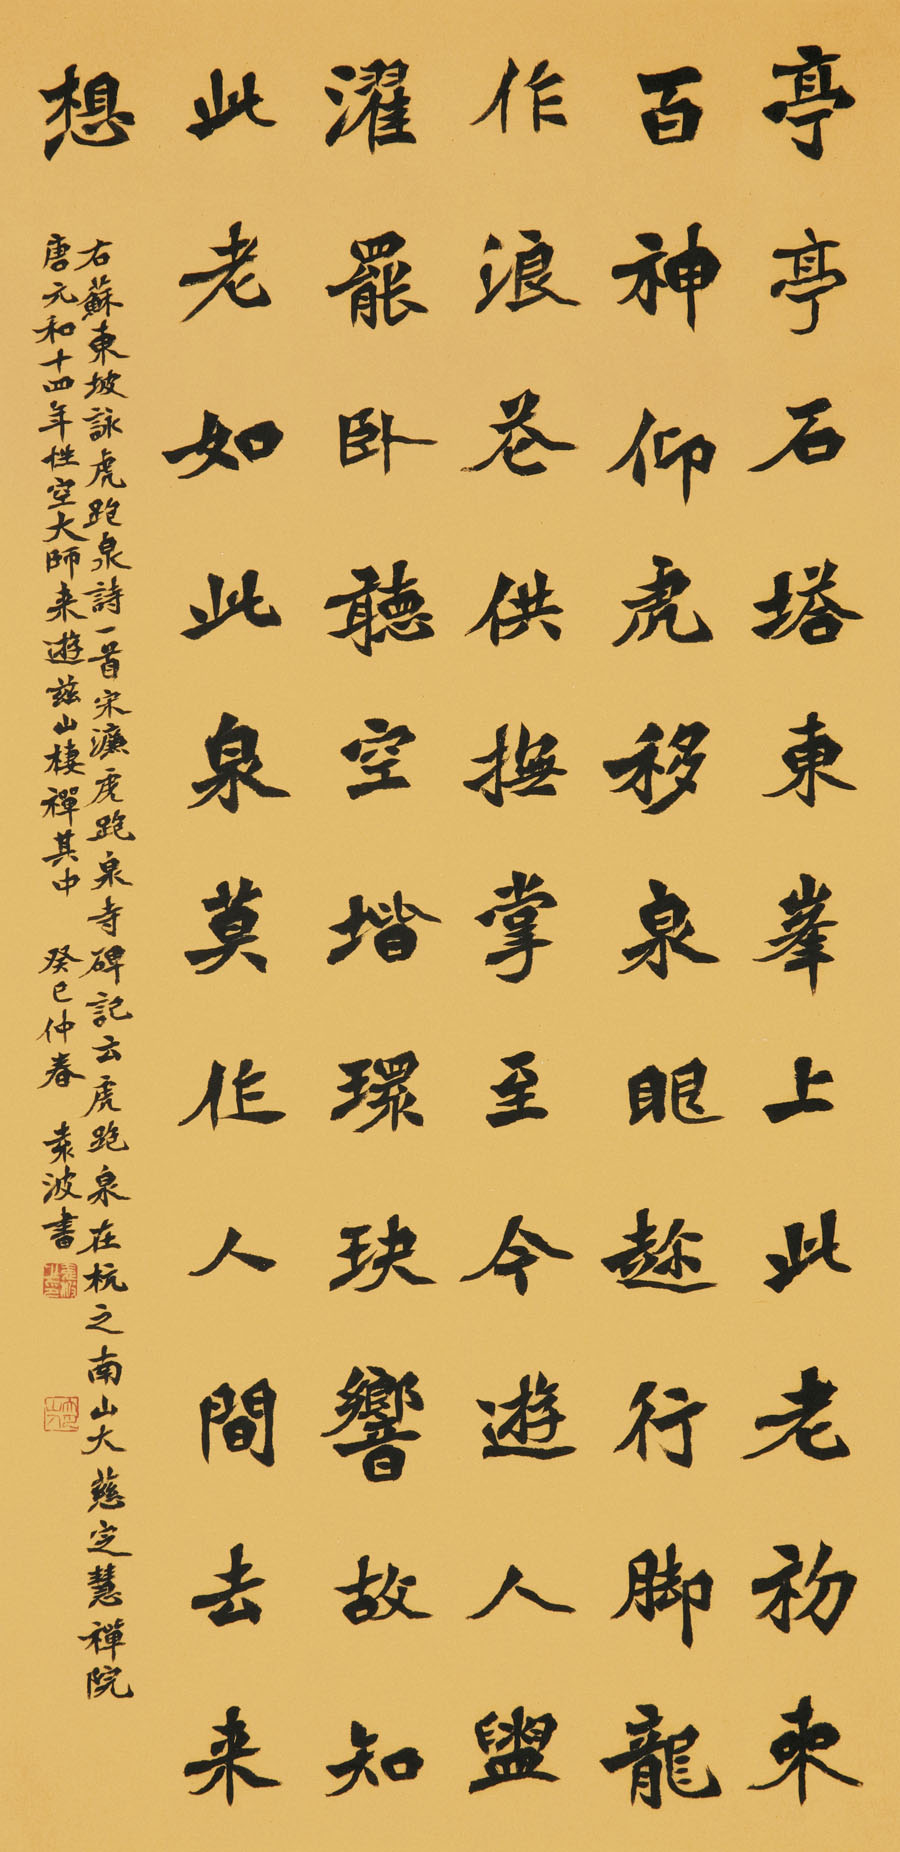 亭亭石塔東峯上此老初来
百神仰虎移泉眼趂行脚龍
作浪花供撫掌至今遊人盥
濯罷卧聽空堦環玦響故知
此老如此泉莫作人間去来
想
右蘇東坡詠虎跑泉詩一首宋濂虎跑泉寺碑記云虎跑泉在杭之南山大慈定慧禪院
唐元和十四年性空大師来遊兹山棲禪其中 癸巳仲春 袁波書